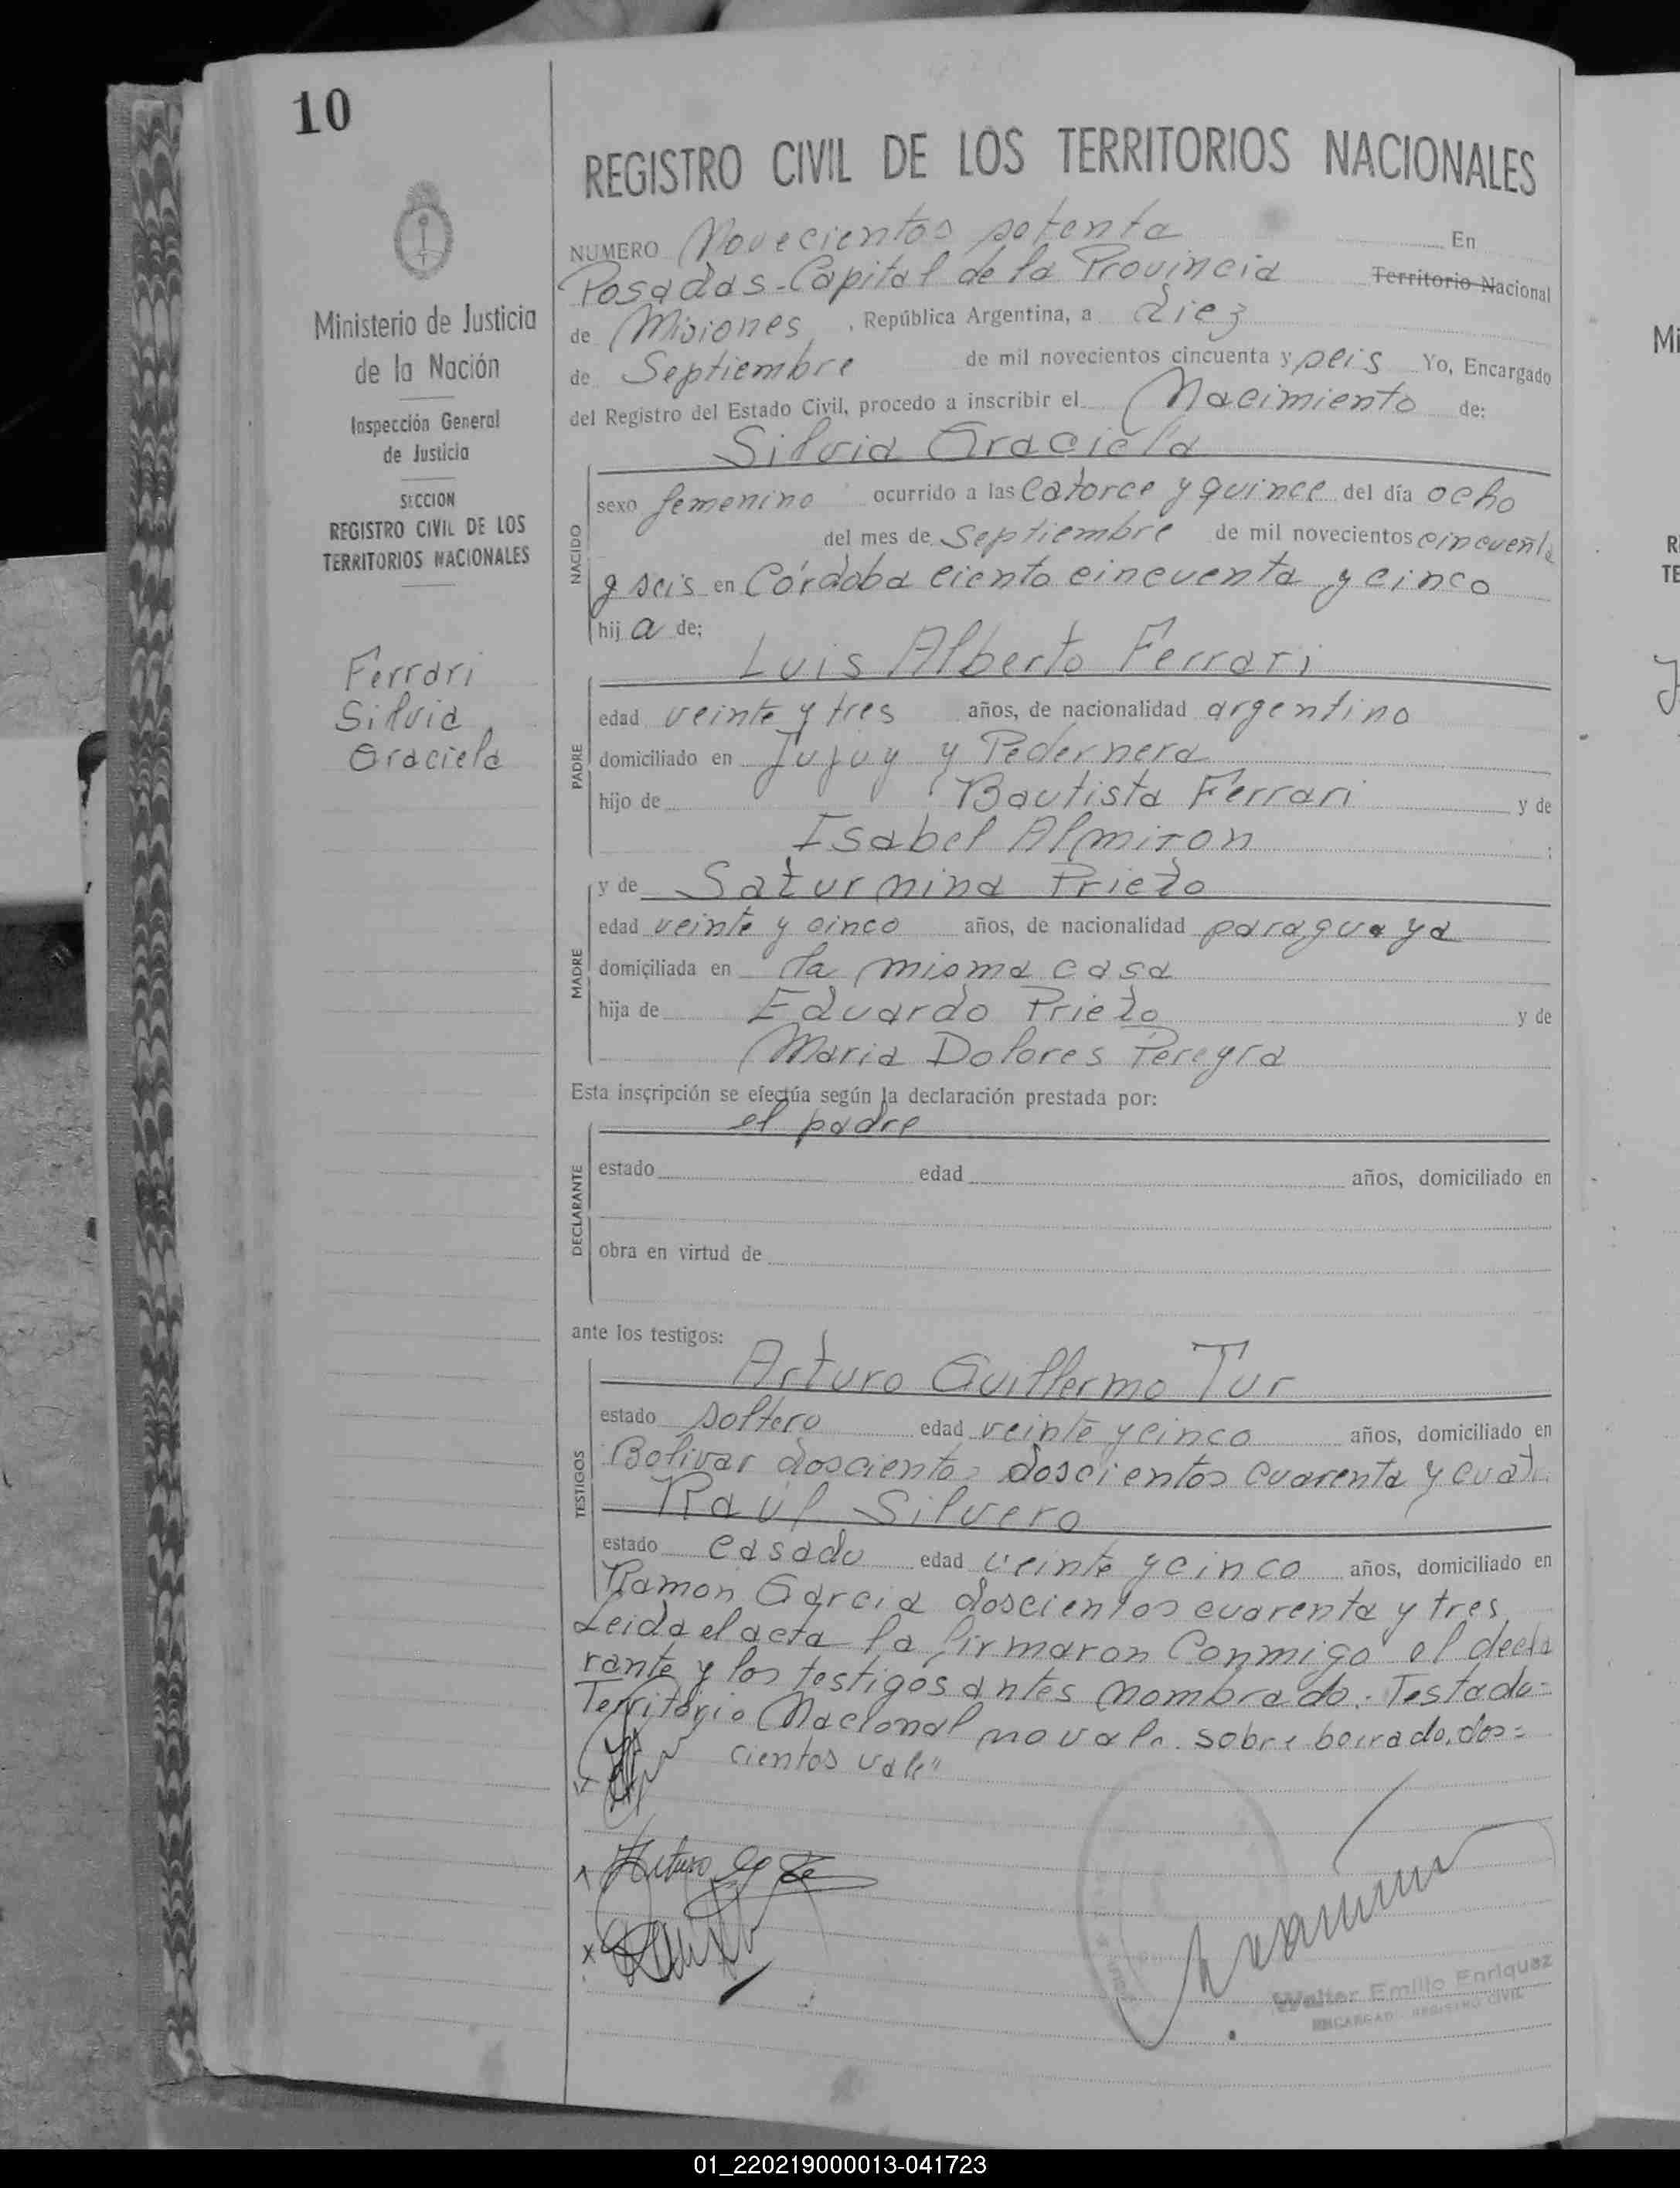 10
Ministerio de Justicia
de la Nación
Inspección General
de Justicia
SECCION
REGISTRO CIVIL DE LOS
TERRITORIOS NACIONALES
Ferrari
Silvia
Graciela
REGISTRO CIVIL DE LOS TERRITORIOS NACIONALES
NUMERO Novecientos setenta En
Posadas-Capital de la Provincia Territorio Nacional
de Misiones, República Argentina, a diez
de Septiembre de mil novecientos cincuenta y seis Yo, Encargado
del Registro del Estado Civil, procedo a inscribir el Nacimiento de:
Silvia Graciela
NACIDO
sexo femenino ocurrido a las catorce y quince del día ocho
del mes de Septiembre de mil novecientos cincuenta
y seis en Córdoba ciento cincuenta y cinco
hij a de:
Luis Alberto Ferrari
PADRE
edad veinte y tres años, de nacionalidad argentino
domiciliado en Jujuy y Pedernera
hijo de Bautista Ferrari y de
Isabel Almiron ;
MADRE
y de Saturnina Prieto
edad veinte y cinco años, de nacionalidad paraguaya
domiciliada en la misma casa
hija de Eduardo Prieto y de
Maria Dolores Pereyra
Esta inscripción se efectúa según la declaración prestada por:
el padre
DECLARANTE
estado edad años, domiciliado en
obra en virtud de
ante los testigos:
Arturo Guillermo Tur
TESTIGOS
estado soltero edad veinte y cinco años, domiciliado en
Bolivar doscientos doscientos cuarenta y cuat
Raúl Silvero
estado casado edad veinte y cinco años, domiciliado en
Ramon Garcia doscientos cuarenta y tres
Leida el acta la firmaron conmigo el decla
rante y los testigos antes nombrado. Testado=
Territorio Nacional no vale. sobre borrado. dos=
cientos vale"
Walter Emilio Enriquez
ENCARGADO REGISTRO CIVIL
01_220219000013-041723